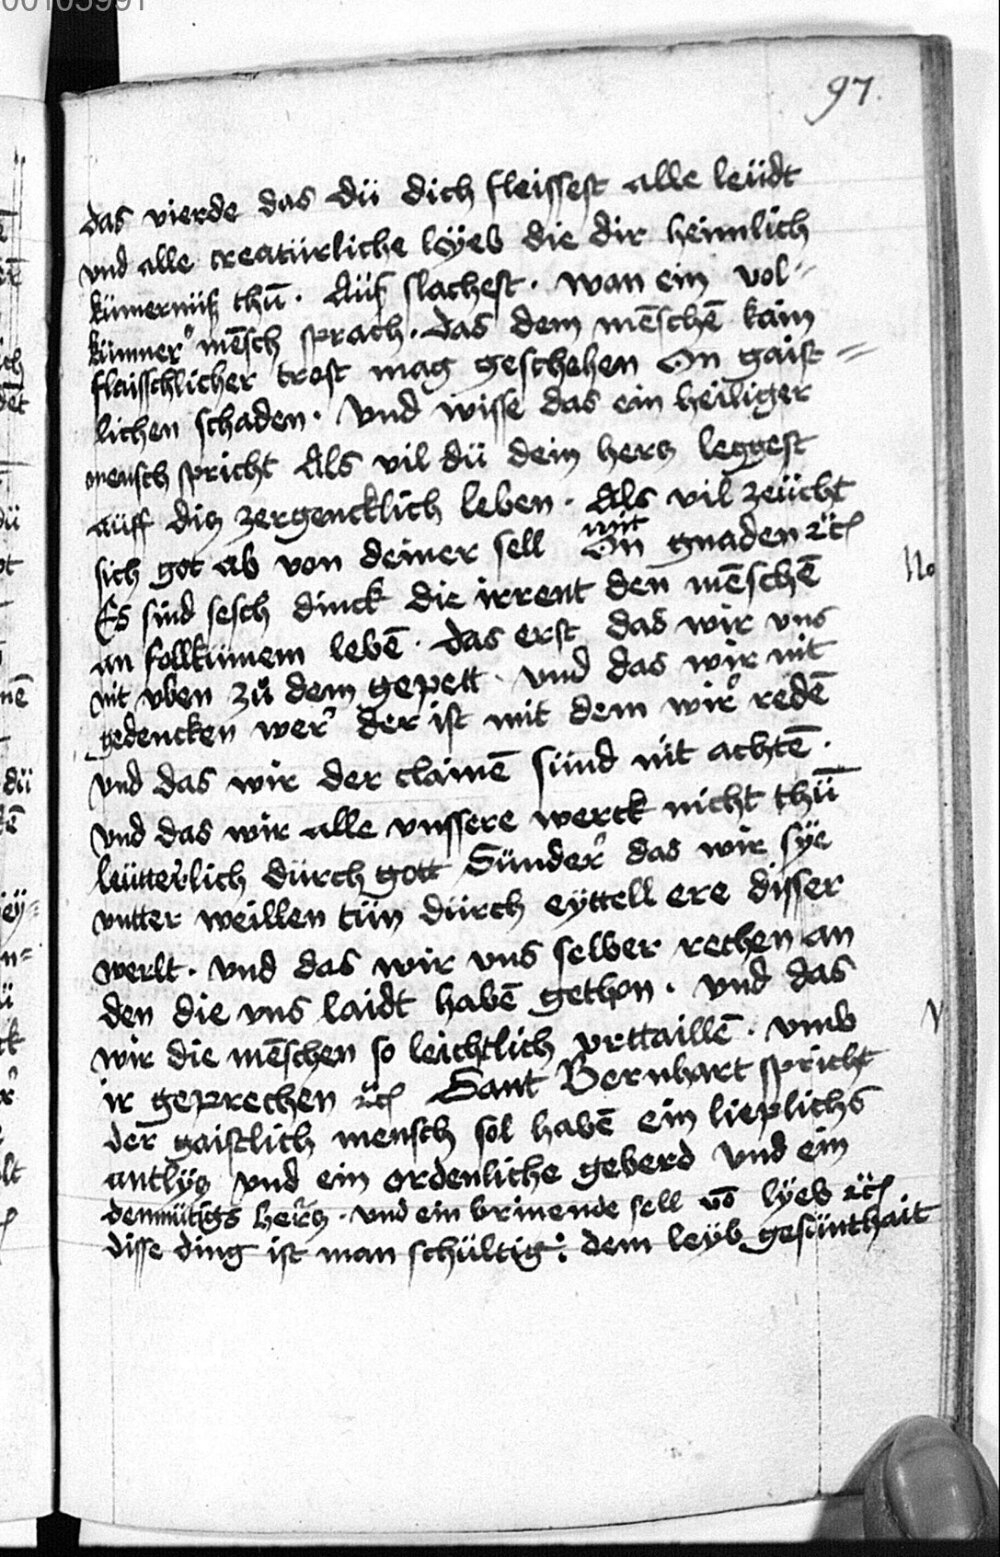 00103991
97.
das vierde das dü dich fleissest alle leüdt
vnd alle creatürliche leÿeb die dir heimlich
kümernüß thū. Aüf slachest. wan ein vol-
kümner mēsch sprach. das dem mēschē kain
flaisschlicher trost mag geschehen On gaist=
lichen schaden. Vnd wisse das ein heiliger
mensch spricht Als vil dü dein hercz leggest
aüff dis zergencklich leben. Als vil zeücht
sich got ab von deiner sell mit On gnaden ꝛc
Es sind sesch dinck die irrent den mēschē No
an follkümem lebē. das erst das wir vns
nit vben zů dem gepett. vnd das wir nit
gedencken wer der ist mit dem wir redē
Vnd das wir der clainē sünd nit achtē.
Vnd das wir alle vnssere werck nicht thū
leütterlich dürch gott Sünder das wir sÿe
vntter weillen tün dürch eÿttell ere disser
werlt. Vnd das wir vns selber rechen an
den die vns laidt habē gethon. Vnd das
wir die mēschen so leichtlich vrttaillē. vmb
ir geprechen ꝛc Sant Bernhart spricht
der gaistlich mensch sol habē ein lieplichs
antlÿcz vnd ein ordenliche geberd Vnd ein
demmütigs hercz. Vnd ein brinende sell vō lÿeb ꝛc
disse ding ist man schültig: dem leÿb gesünthait